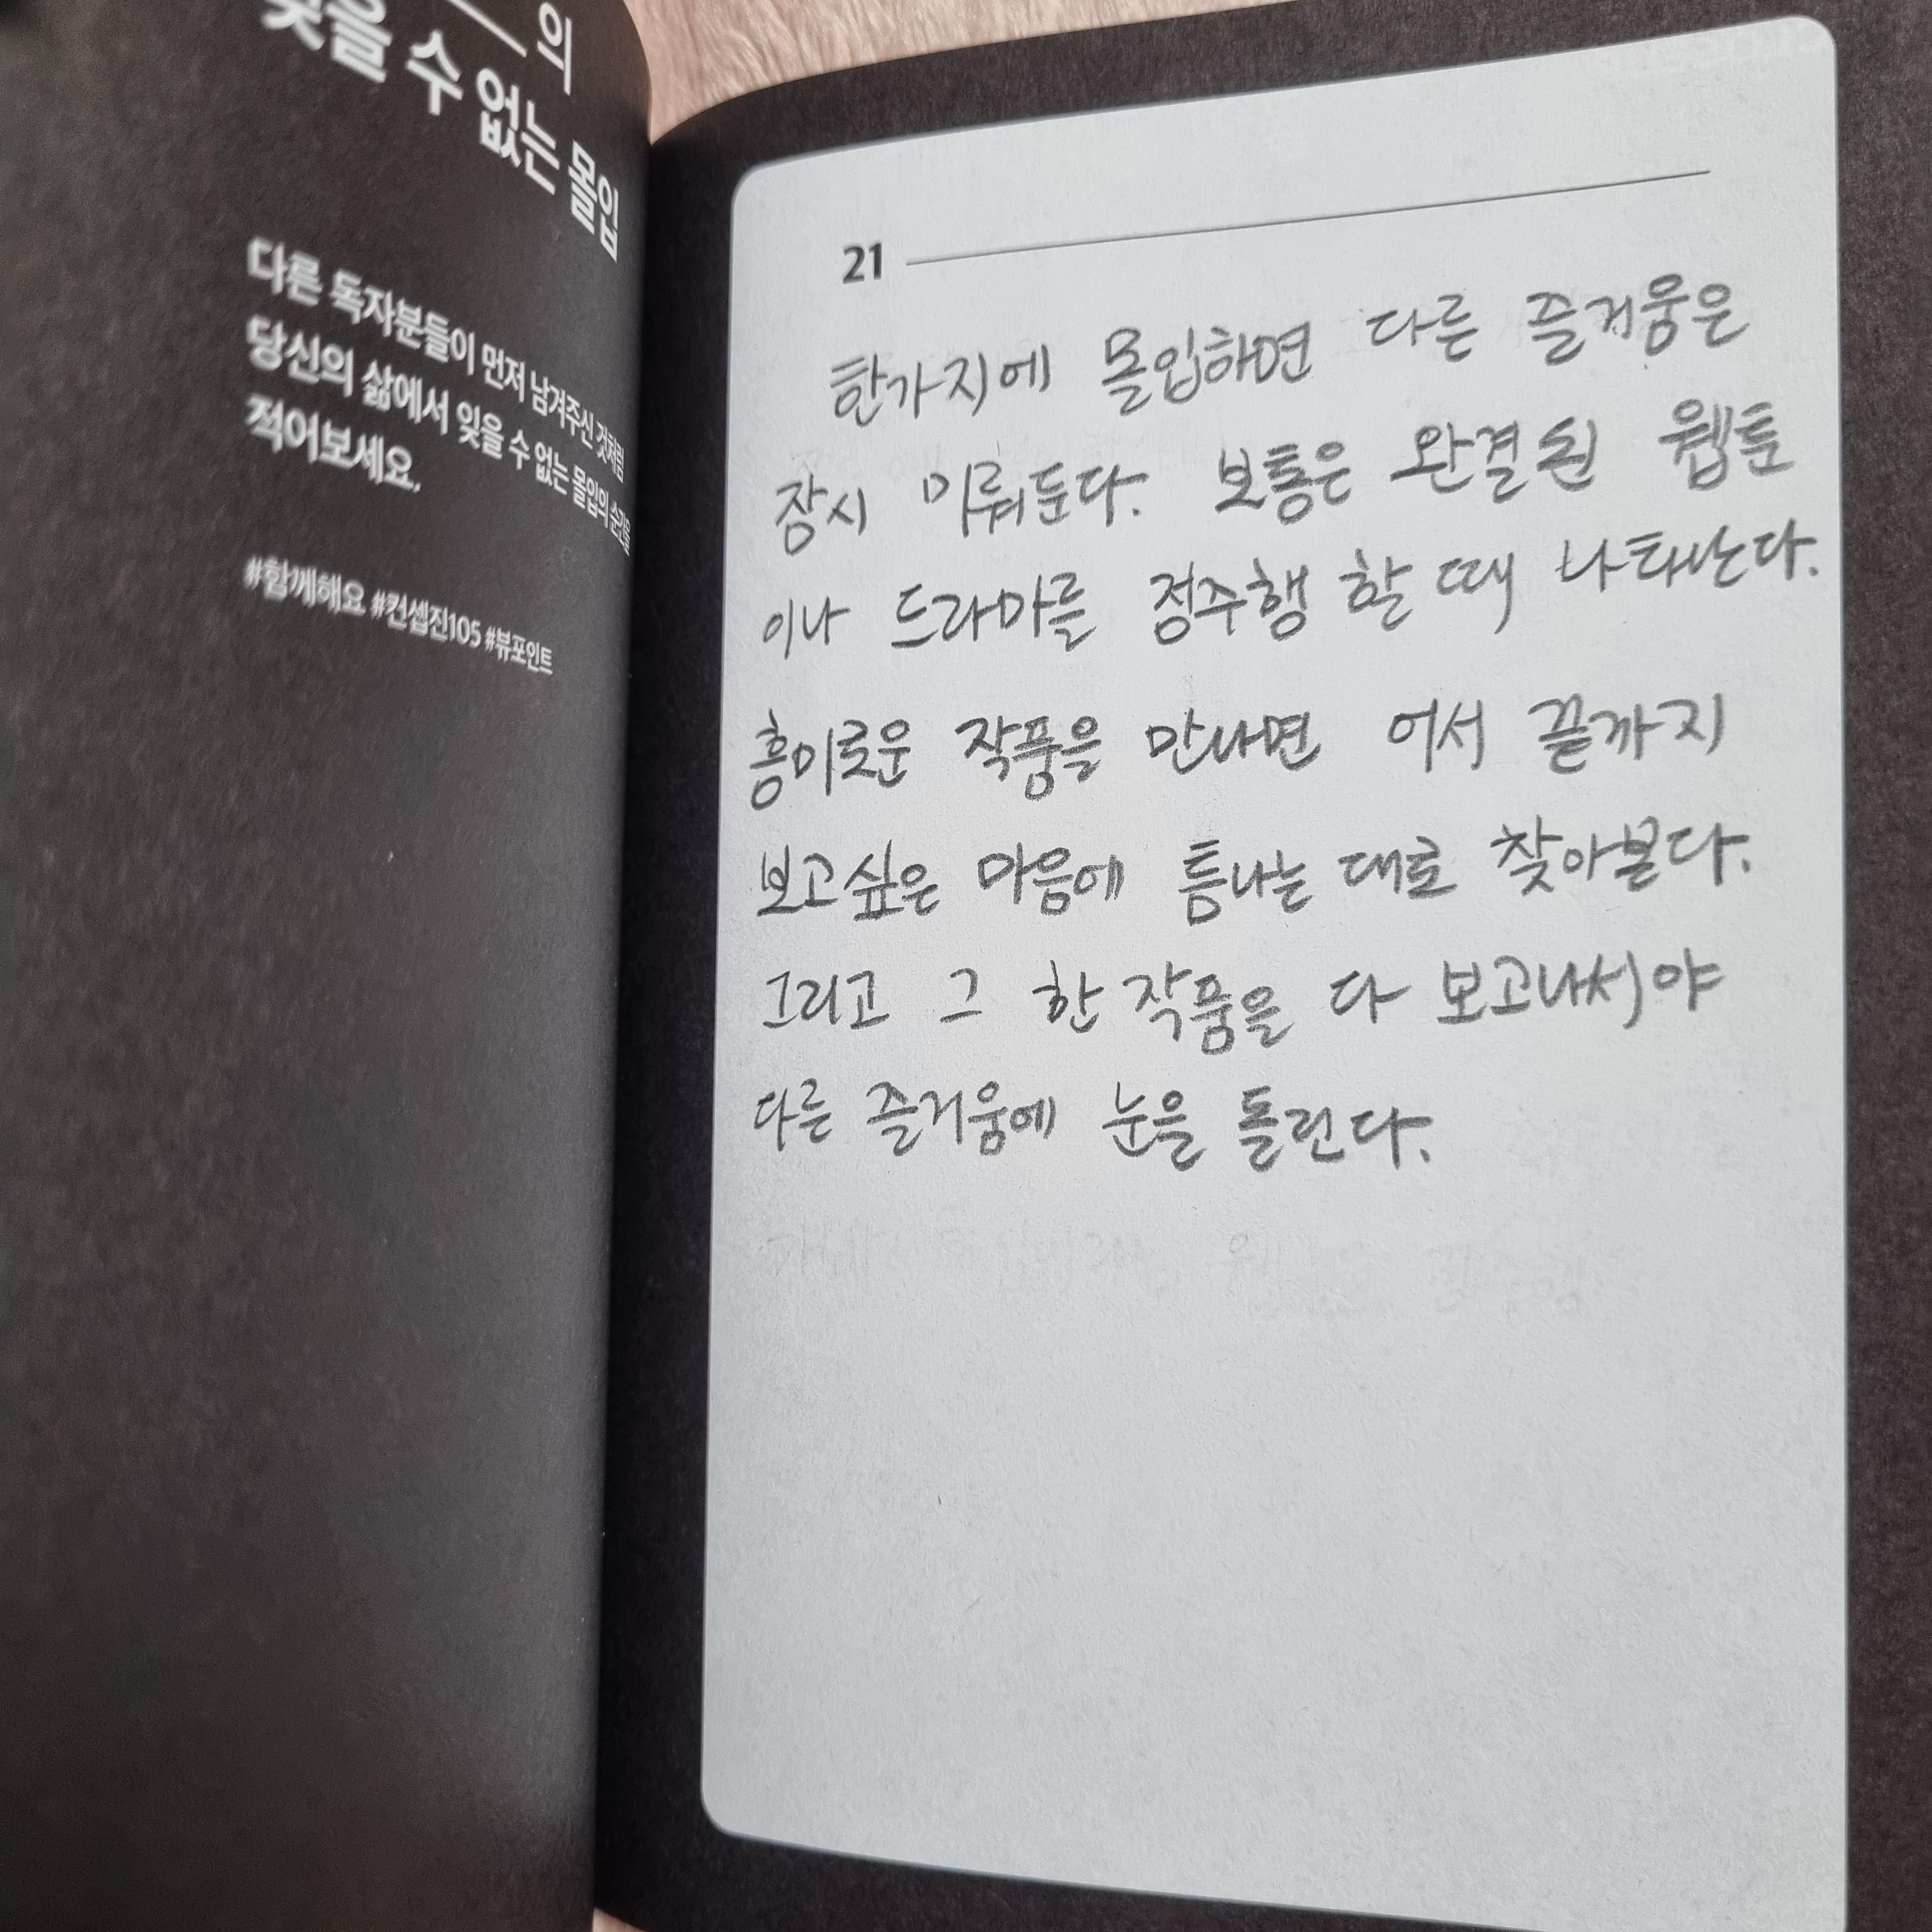 의
잊을 수 없는 몰입
다른 독자분들이 먼저 남겨주신 것처럼
당신의 삶에서 잊을 수 없는 몰입의 순간을
적어보세요.
#함께해요 #컨셉진105 #뷰포인트
21
한가지에 몰입하면 다른 즐거움은
잠시 미뤄둔다. 보통은 완결된 웹툰
이나 드라마를 정주행 할 때 나타난다.
흥미로운 작품을 만나면 어서 끝까지
보고싶은 마음에 틈나는 대로 찾아본다.
그리고 그 한 작품을 다 보고나서야
다른 즐거움에 눈을 돌린다.